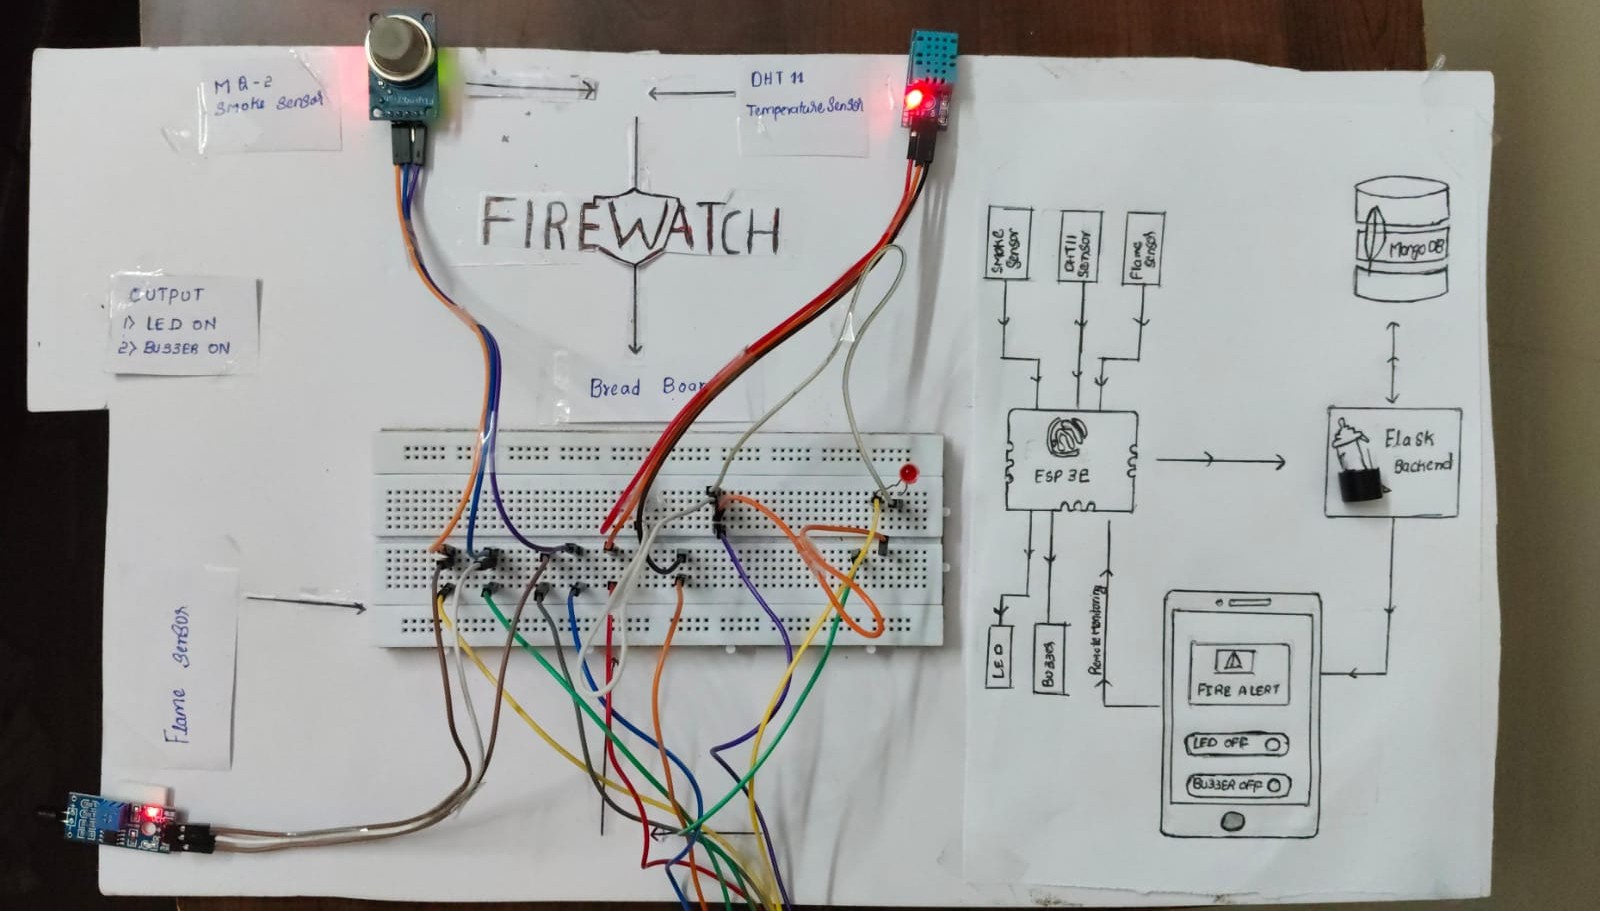 MQ-2
Smoke Sensor
DHT 11
Temperature Sensor
FIREWATCH
OUTPUT
1> LED ON
2> BUZZER ON
Bread Boar
Flame Sensor
Smoke
Sensor
DHT11
Sensor
Flame
Sensor
MongoDB
ESP 32
Flask
Backend
LED
BUZZER
Remote Monitoring
FIRE ALERT
LED OFF
BUZZER OFF